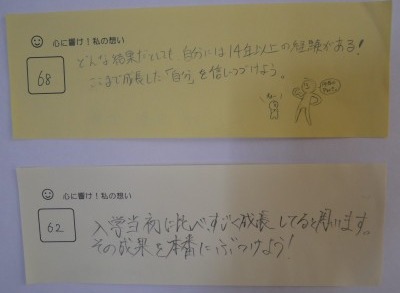 心に響け！私の想い
68
どんな結果だとしても 自分には14年以上の経験がある！
ここまで成長した「自分」を信じつづけよう。
心に響け！私の想い
62
入学当初に比べ、すごく成長してると思います。
その成果を本番にぶつけよう！